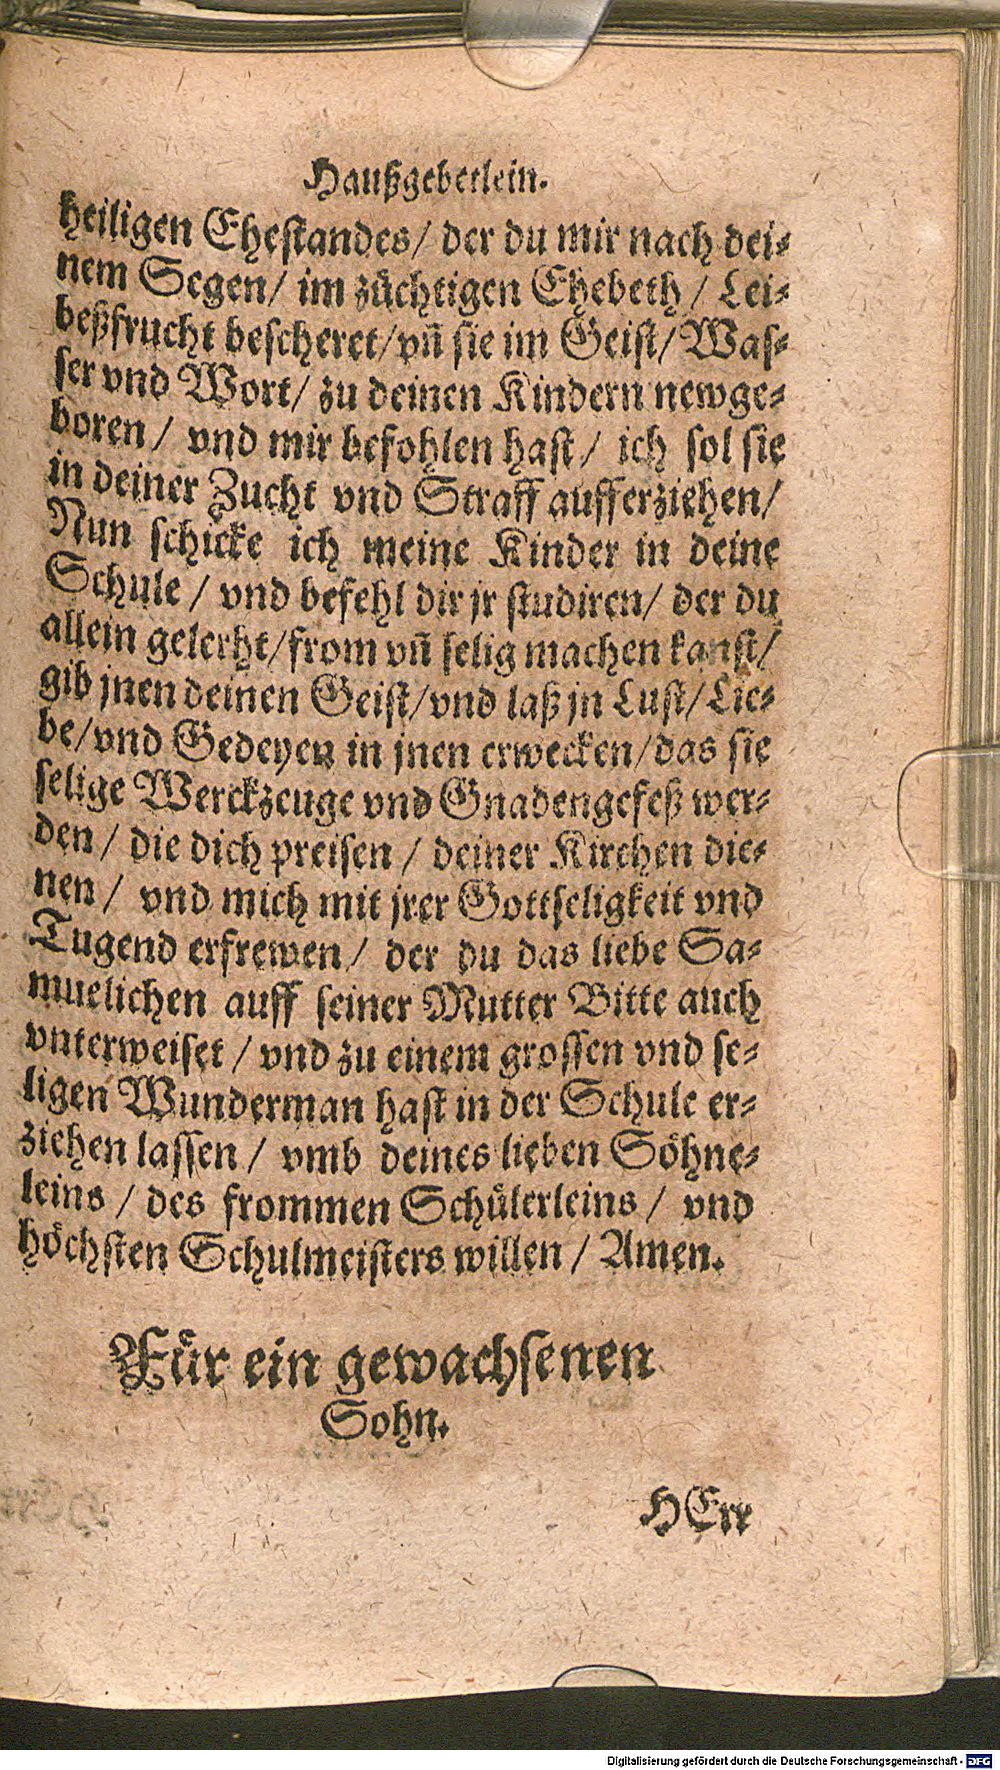 Haußgebetlein.
heiligen Ehestandes/ der du mir nach dei-
nem Segen/ im züchtigen Ehebeth/ Lei-
beßfrucht bescheret/vñ sie im Geist/ Was-
ser vnd Wort/ zu deinen Kindern newge-
boren/ vnd mir befohlen hast/ ich sol sie
in deiner Zucht vnd Straff aufferziehen/
Nun schicke ich meine Kinder in deine
Schule/ vnd befehl dir jr studiren/ der du
allein gelerht/from vñ selig machen kanst/
gib jnen deinen Geist/vnd laß jn Lust/Lie-
be/vnd Gedeyen in jnen erwecken/das sie
selige Werckzeuge vnd Gnadengefeß wer-
den/ die dich preisen/ deiner Kirchen die-
nen/ vnd mich mit jrer Gottseligkeit vnd
Tugend erfrewen/ der du das liebe Sa-
muelichen auff seiner Mutter Bitte auch
vnterweiset/ vnd zu einem grossen vnd se-
ligen Wunderman hast in der Schule er-
ziehen lassen/ vmb deines lieben Söhne-
leins/ des frommen Schülerleins/ vnd
höchsten Schulmeisters willen/ Amen.
Für ein gewachsenen
Sohn.
HErr
Digitalisierung gefördert durch die Deutsche Forschungsgemeinschaft - DFG